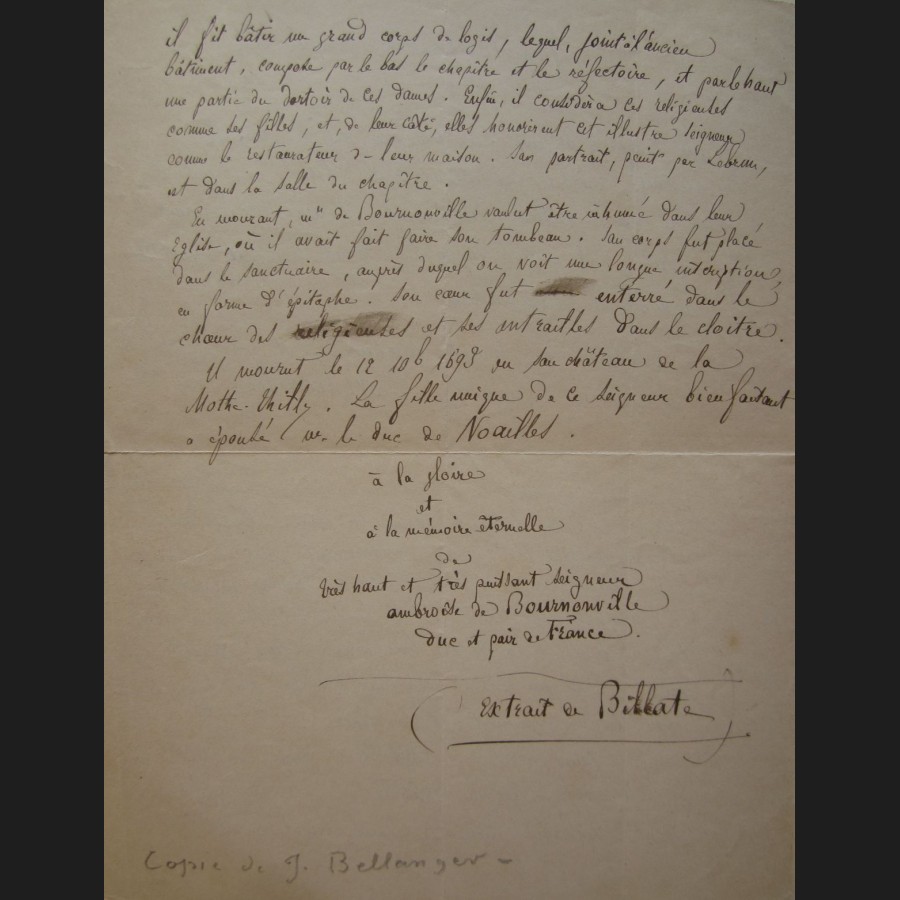 il fit bâtir un grand corps de logis, lequel, joint à l'ancien
bâtiment, compose par le bas le chapitre et le réfectoire, et par le haut
une partie du dortoir de ces dames. Enfin, il considéra ces religieuses
comme ses filles, et, de leur côté, elles honorèrent cet illustre seigneur
comme le restaurateur de leur maison. Son portrait, peint par Lebrun,
est dans la salle du chapitre.
En mourant, mr de Bournonville voulut être inhumé dans leur
Eglise, où il avait fait faire son tombeau. Son corps fut placé
dans le sanctuaire, auprès duquel on voit une longue inscription,
en forme d'épitaphe. Son cœur fut enterré dans le
chœur des religieuses et ses entrailles dans le cloitre.
Il mourut le 12 10b 1693 en son château de la
Mothe-Thilly. La fille unique de ce seigneur bienfaisant
a épousé mr. le duc de Noailles.
à la gloire
et
à la mémoire éternelle
de
très haut et très puissant seigneur
ambroise de Bournonville
duc et pair de France.
Extrait de Billate
Copie de J. Bellanger -